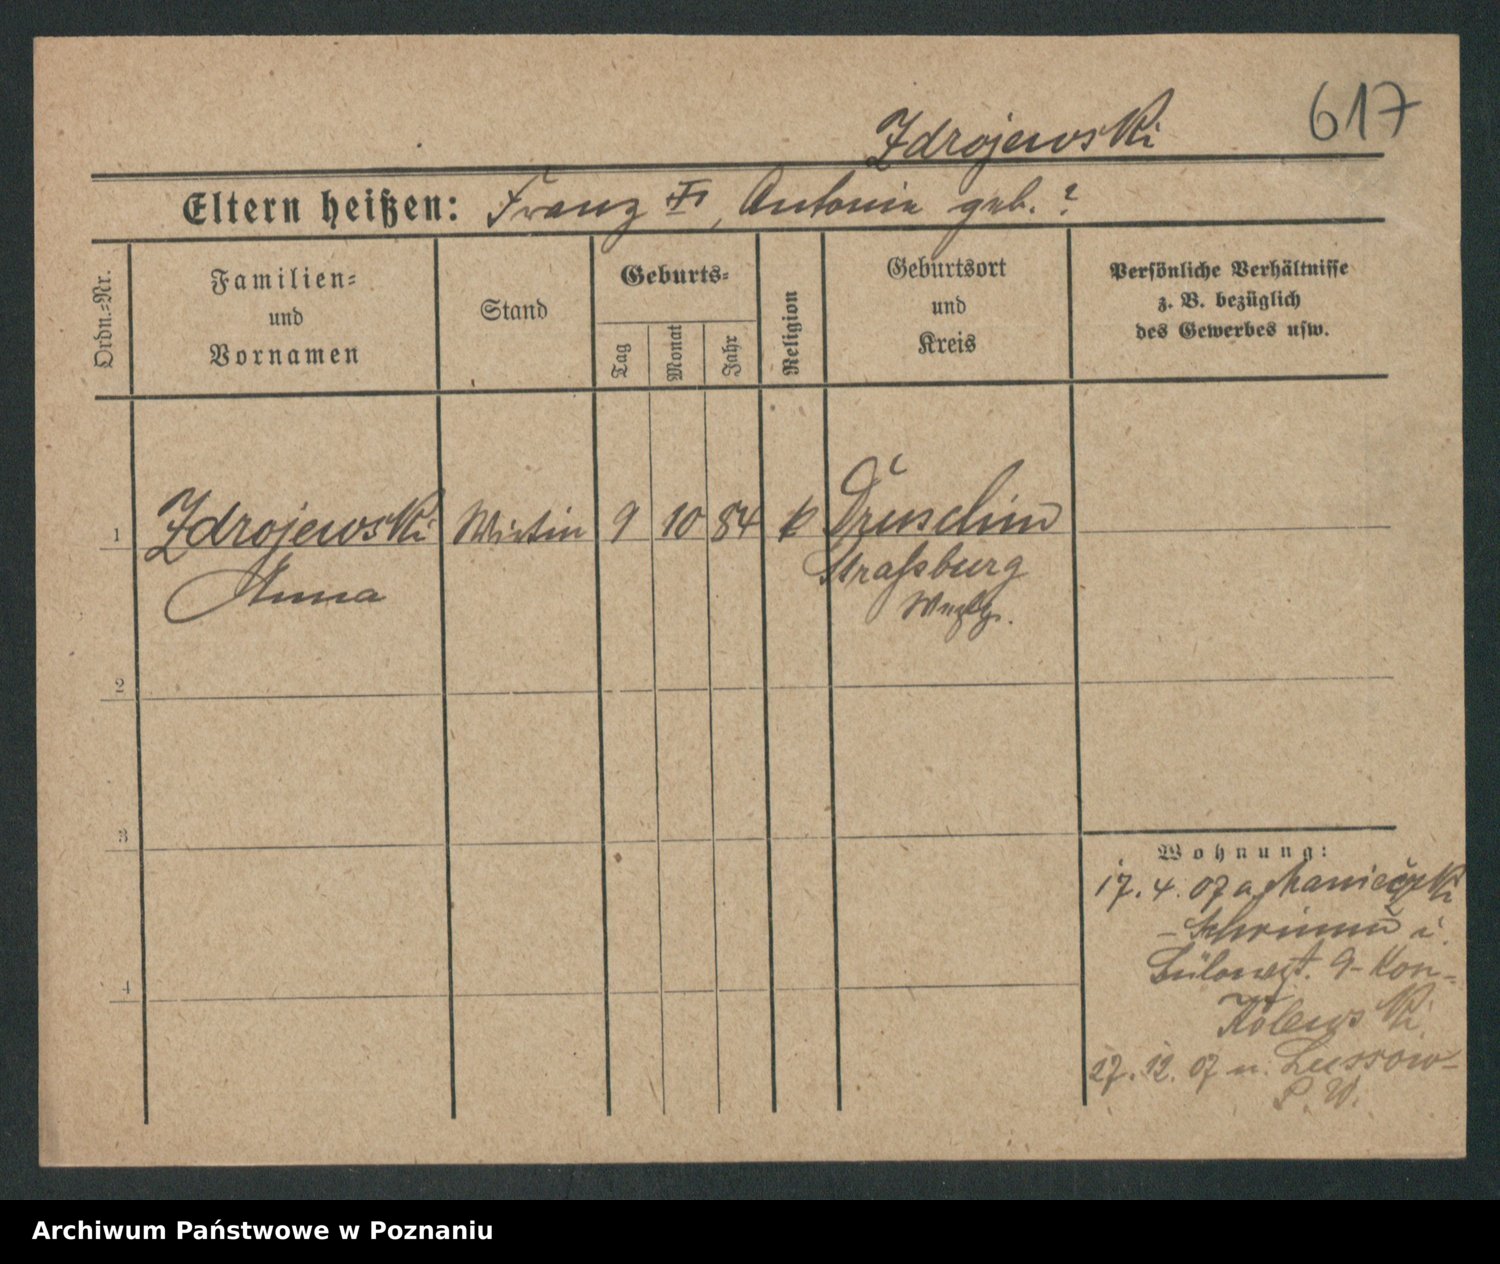 617
Zdrojewski
Eltern heißen: Franz †, Antonie geb. ?
Ordn.-Nr.
Familien-
und
Vornamen
Stand
Geburts-
Tag
Monat
Jahr
Religion
Geburtsort
und
Kreis
Persönliche Verhältnisse
z. B. bezüglich
des Gewerbes usw.
1 Zdrojewski Wirtin 9 10 84 k Druschin
Anna Straßburg
2
3
4
Wohnung:
17. 4. 07 a. Manieczki
- Schrimm i.
Bülowst. 9 - Kon-
kolewski
27. 12. 07 n. Lussow-
P. W.
Archiwum Państwowe w Poznaniu